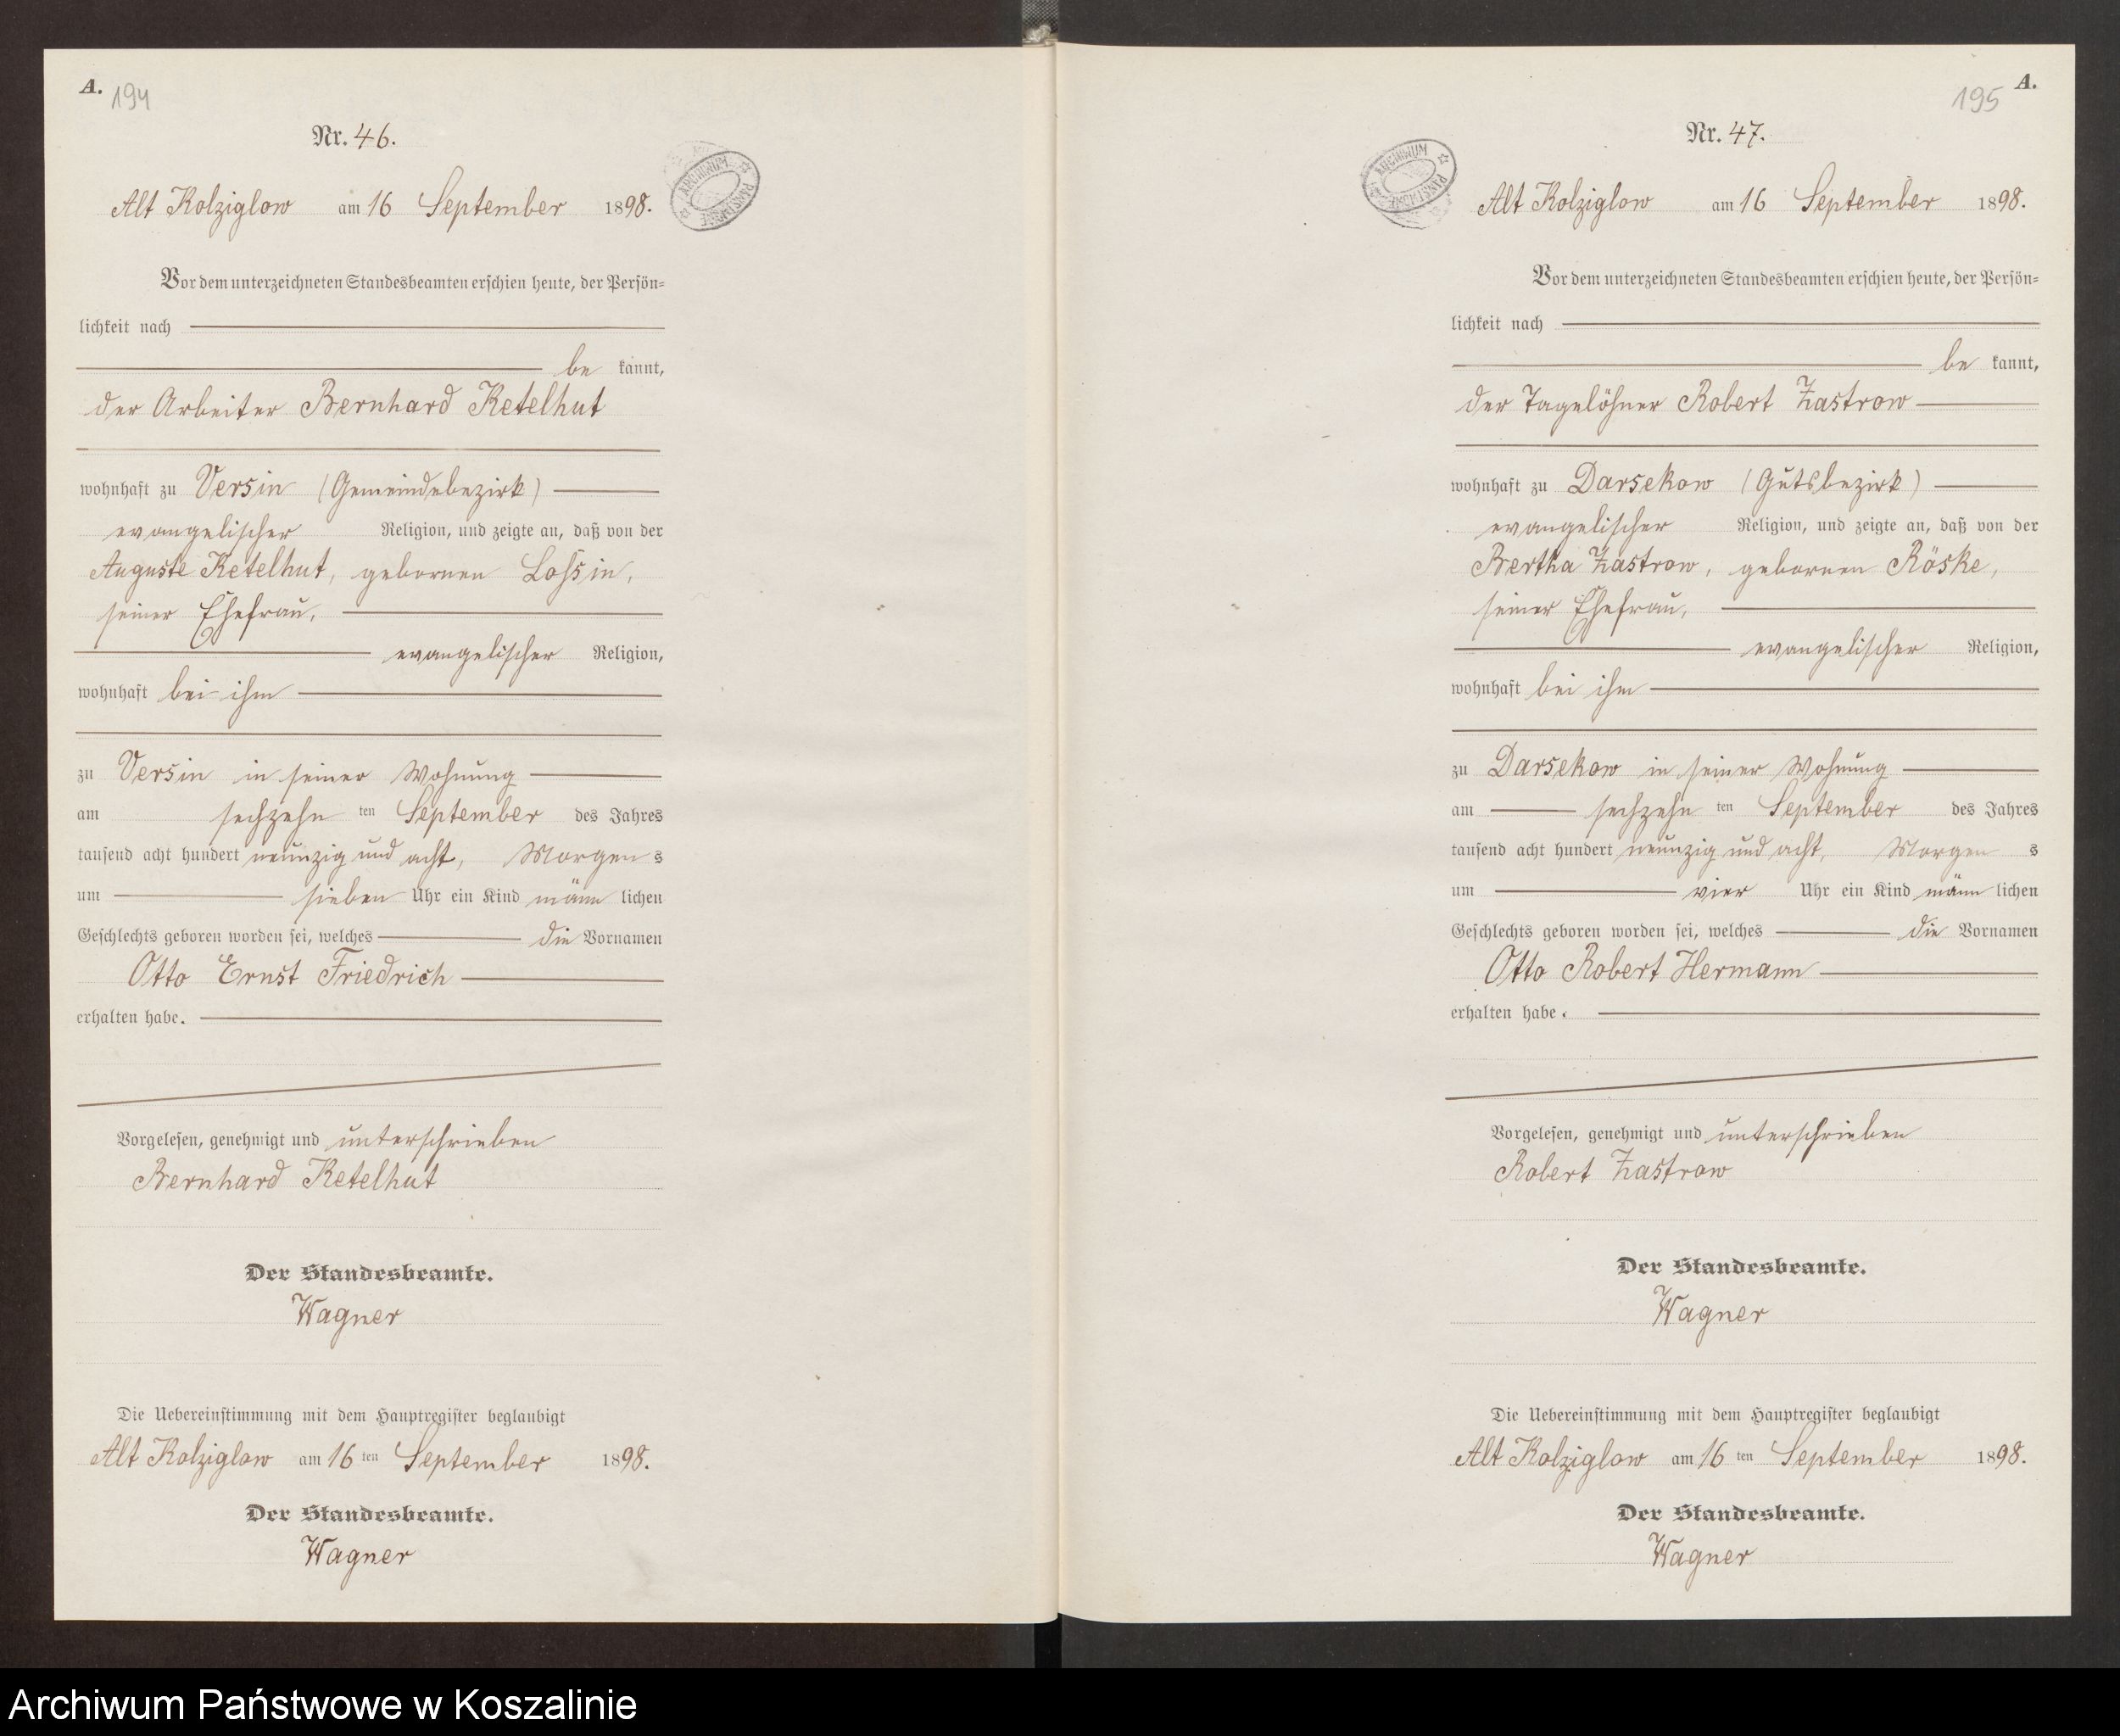 A.
194
Nr. 46.
Alt Kolziglow am 16 September 1898.
ARCHIWUM PAŃSTWOWE
Vor dem unterzeichneten Standesbeamten erschien heute, der Persön-
lichkeit nach
be kannt,
der Arbeiter Bernhard Ketelhut
wohnhaft zu Versin (Gemeindebezirk)
evangelischer Religion, und zeigte an, daß von der
Auguste Ketelhut, gebornen Lossin,
seiner Ehefrau,
evangelischer Religion,
wohnhaft bei ihm
zu Versin in seiner Wohnung
am sechzehn ten September des Jahres
tausend acht hundert neunzig und acht, Morgens
um sieben Uhr ein Kind männlichen
Geschlechts geboren worden sei, welches die Vornamen
Otto Ernst Friedrich
erhalten habe.
Vorgelesen, genehmigt und unterschrieben
Bernhard Ketelhut
Der Standesbeamte.
Wagner
Die Uebereinstimmung mit dem Hauptregister beglaubigt
Alt Kolziglow am 16 ten September 1898.
Der Standesbeamte.
Wagner
A.
195
Nr. 47.
ARCHIWUM PAŃSTWOWE
Alt Kolziglow am 16 September 1898.
Vor dem unterzeichneten Standesbeamten erschien heute, der Persön-
lichkeit nach
be kannt,
der Tagelöhner Robert Zastrow
wohnhaft zu Darsekow (Gutsbezirk)
evangelischer Religion, und zeigte an, daß von der
Bertha Zastrow, gebornen Röske,
seiner Ehefrau,
evangelischer Religion,
wohnhaft bei ihm
zu Darsekow in seiner Wohnung
am sechzehn ten September des Jahres
tausend acht hundert neunzig und acht, Morgens
um vier Uhr ein Kind männlichen
Geschlechts geboren worden sei, welches die Vornamen
Otto Robert Hermann
erhalten habe.
Vorgelesen, genehmigt und unterschrieben
Robert Zastrow
Der Standesbeamte.
Wagner
Die Uebereinstimmung mit dem Hauptregister beglaubigt
Alt Kolziglow am 16 ten September 1898.
Der Standesbeamte.
Wagner
Archiwum Państwowe w Koszalinie